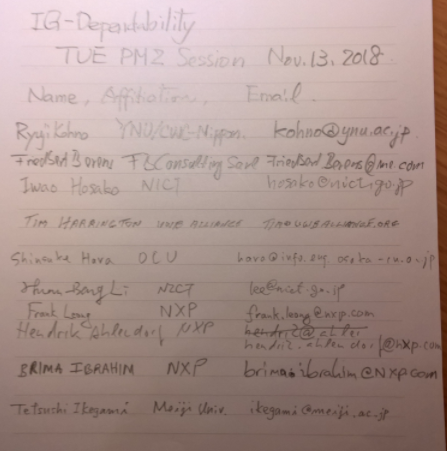 IG-Dependability
TUE PM2 Session Nov.13.2018
Name, Affiliation, Email.
Ryuji Kohno YNU/CWC-Nippon. kohno@ynu.ac.jp
Friedbert Berens FBConsulting Sarl FriedbertBerens@me.com
Iwao Hosako NICT hosako@nict.go.jp
TIM HARRINGTON UWB ALLIANCE TIM@UWBALLIANCE.ORG
Shinsuke Hara OCU
Huan-Bang Li NICT lee@nict.go.jp
Frank Leong NXP frank.leong@nxp.com
Hendrik Ahlendorf NXP
hendrik.ahlendorf@nxp.com
BRIMA IBRAHIM NXP brima.ibrahim@NXP.com
Tetsushi Ikegami Meiji Univ. ikegami@meiji.ac.jp